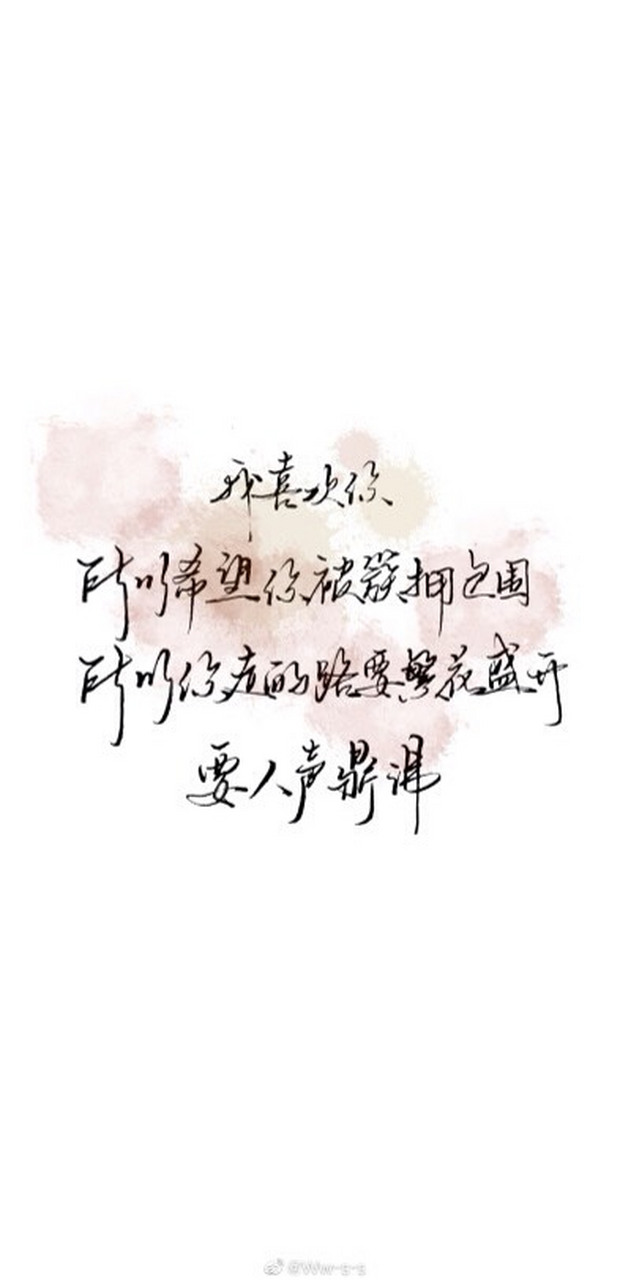 我喜欢你
所以希望你被簇拥包围
所以你走的路要繁花盛开
要人声鼎沸
@Ww-s-s